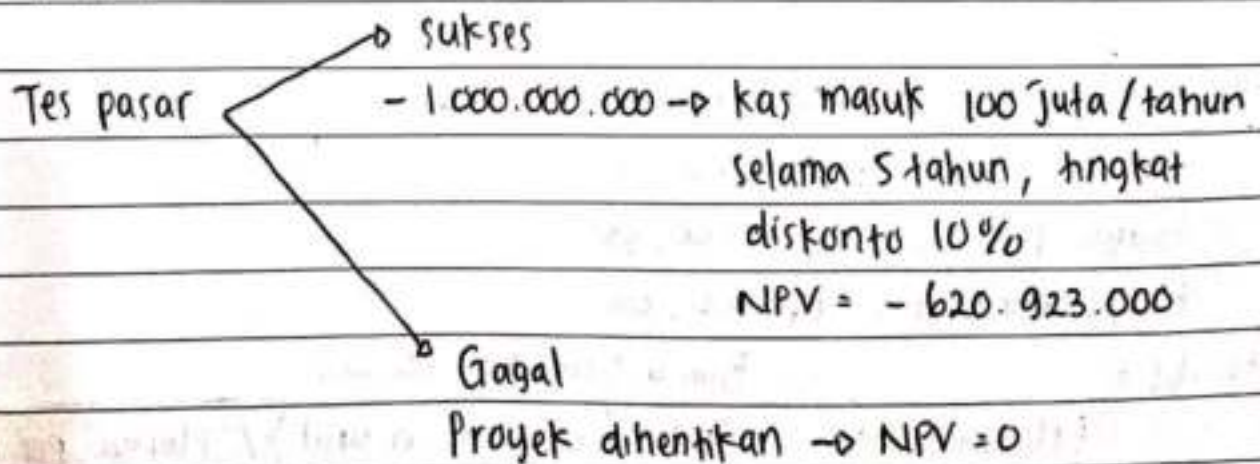 sukses
Tes pasar - 1.000.000.000 → kas masuk 100 juta / tahun
selama 5 tahun, tingkat
diskonto 10%
NPV = - 620.923.000
Gagal
Proyek dihentikan → NPV = 0